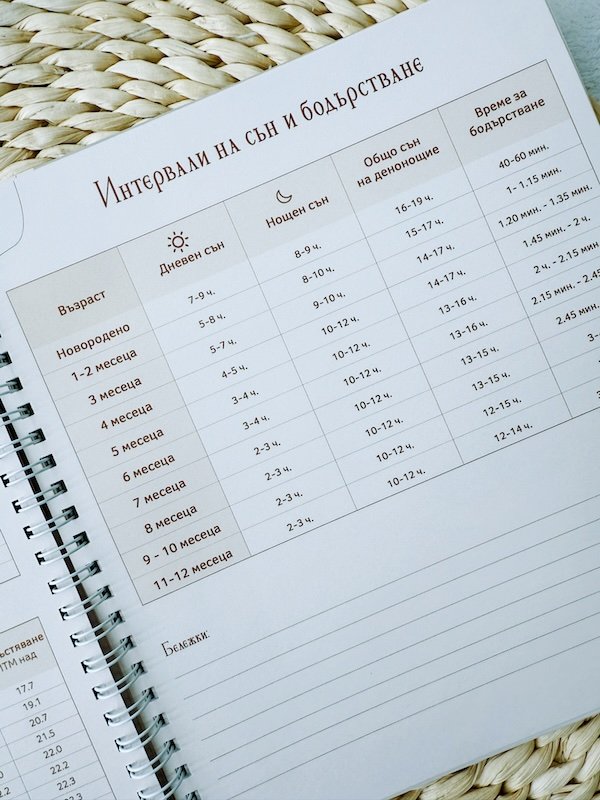 Интервали на сън и бодърстване
Възраст Дневен сън Нощен сън Общо сън на денонощие Време за бодърстване
Новородено 7-9 ч. 8-9 ч. 16-19 ч. 40-60 мин.
1-2 месеца 5-8 ч. 8-10 ч. 15-17 ч. 1- 1.15 мин.
3 месеца 5-7 ч. 9-10 ч. 14-17 ч. 1.20 мин. - 1.35 мин.
4 месеца 4-5 ч. 10-12 ч. 14-17 ч. 1.45 мин. - 2 ч.
5 месеца 3-4 ч. 10-12 ч. 13-16 ч. 2 ч. - 2.15 мин
6 месеца 3-4 ч. 10-12 ч. 13-16 ч. 2.15 мин. - 2.45
7 месеца 2-3 ч. 10-12 ч. 13-15 ч. 2.45 мин. -
8 месеца 2-3 ч. 10-12 ч. 13-15 ч. 3-
9 - 10 месеца 2-3 ч. 10-12 ч. 12-15 ч.
11-12 месеца 2-3 ч. 10-12 ч. 12-14 ч.
Бележки:
ъстяване
ИТМ над
17.7
19.1
20.7
21.5
22.0
22.2
22.3